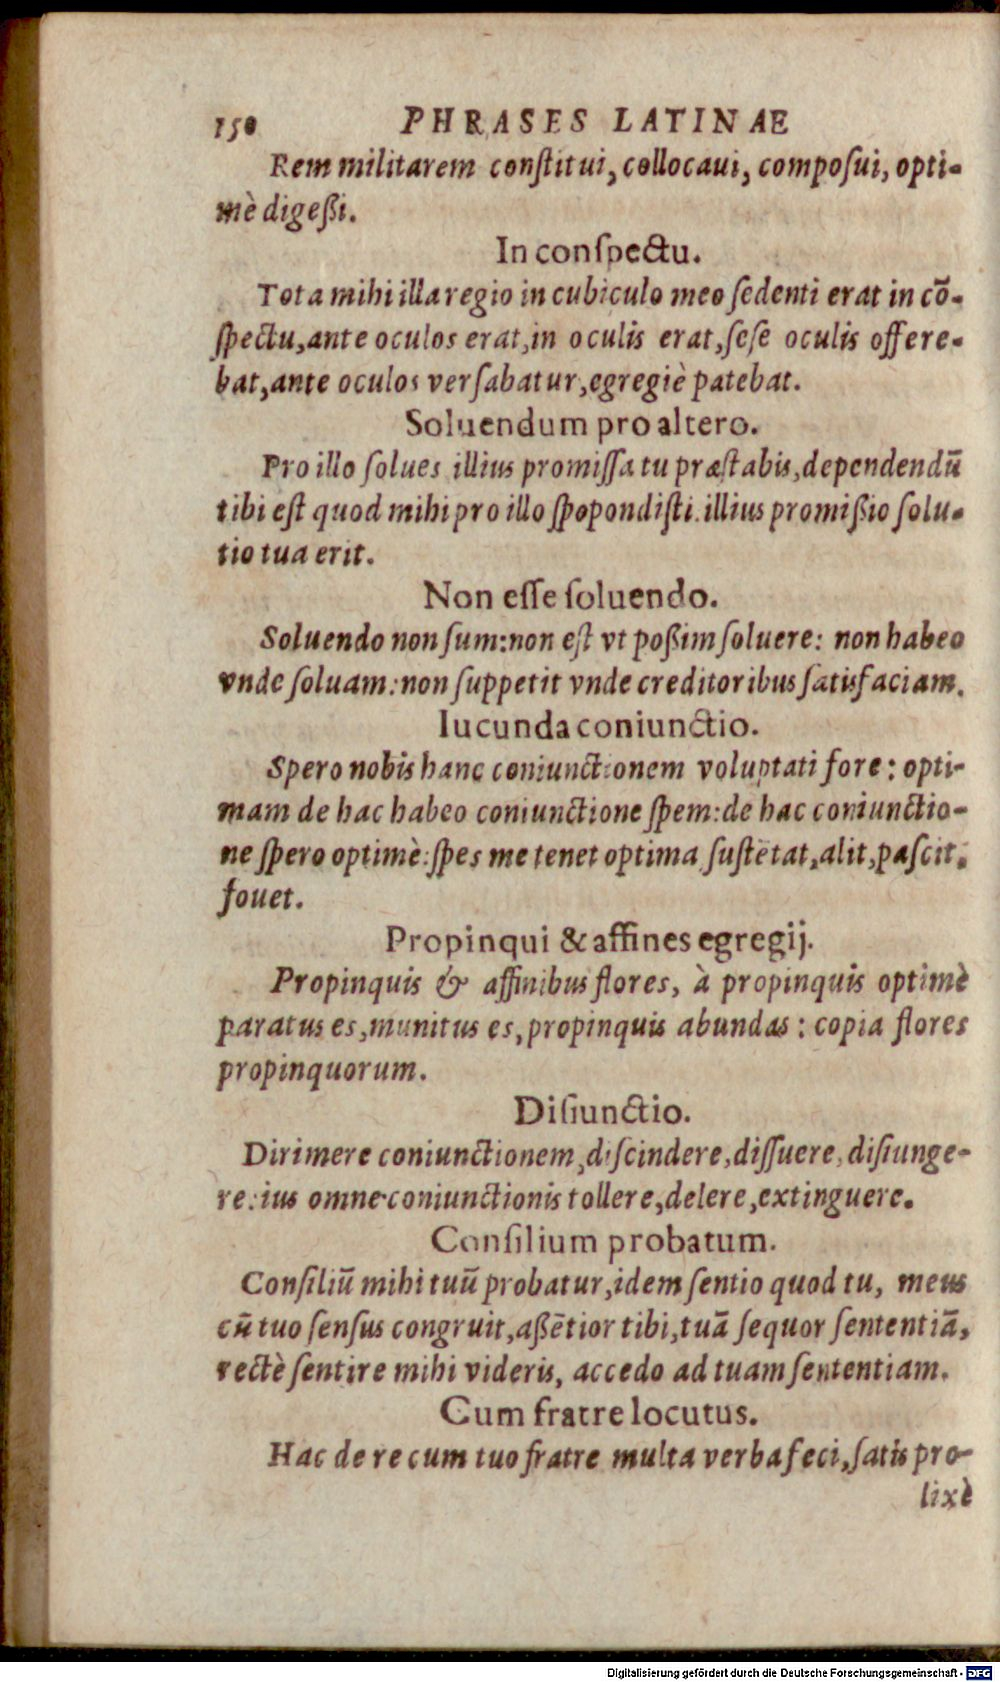 150 PHRASES LATINAE
Rem militarem constitui, collocaui, composui, opti-
mè digeßi.
In conspectu.
Tota mihi illa regio in cubiculo meo sedenti erat in cō-
spectu, ante oculos erat, in oculis erat, sese oculis offere-
bat, ante oculos versabatur, egregiè patebat.
Soluendum pro altero.
Pro illo solues illius promissa tu præstabis, dependendū
tibi est quod mihi pro illo spopondisti. illius promißio solu-
tio tua erit.
Non esse soluendo.
Soluendo non sum: non est vt poßim soluere: non habeo
vnde soluam: non suppetit vnde creditoribus satisfaciam.
Iucunda coniunctio.
Spero nobis hanc coniunctionem voluptati fore: opti-
mam de hac habeo coniunctione spem: de hac coniunctio-
ne spero optimè: spes me tenet optima sustētat, alit, pascit,
fouet.
Propinqui & affines egregij.
Propinquis & affinibus flores, à propinquis optimè
paratus es, munitus es, propinquis abundas: copia flores
propinquorum.
Disiunctio.
Dirimere coniunctionem, discindere, dissuere, disiunge-
re: ius omne coniunctionis tollere, delere, extinguere.
Consilium probatum.
Consiliū mihi tuū probatur, idem sentio quod tu, meus
cū tuo sensus congruit, aßētior tibi, tuā sequor sententiā,
rectè sentire mihi videris, accedo ad tuam sententiam.
Cum fratre locutus.
Hac de re cum tuo fratre multa verba feci, satis pro-
lixè
Digitalisierung gefördert durch die Deutsche Forschungsgemeinschaft - DFG